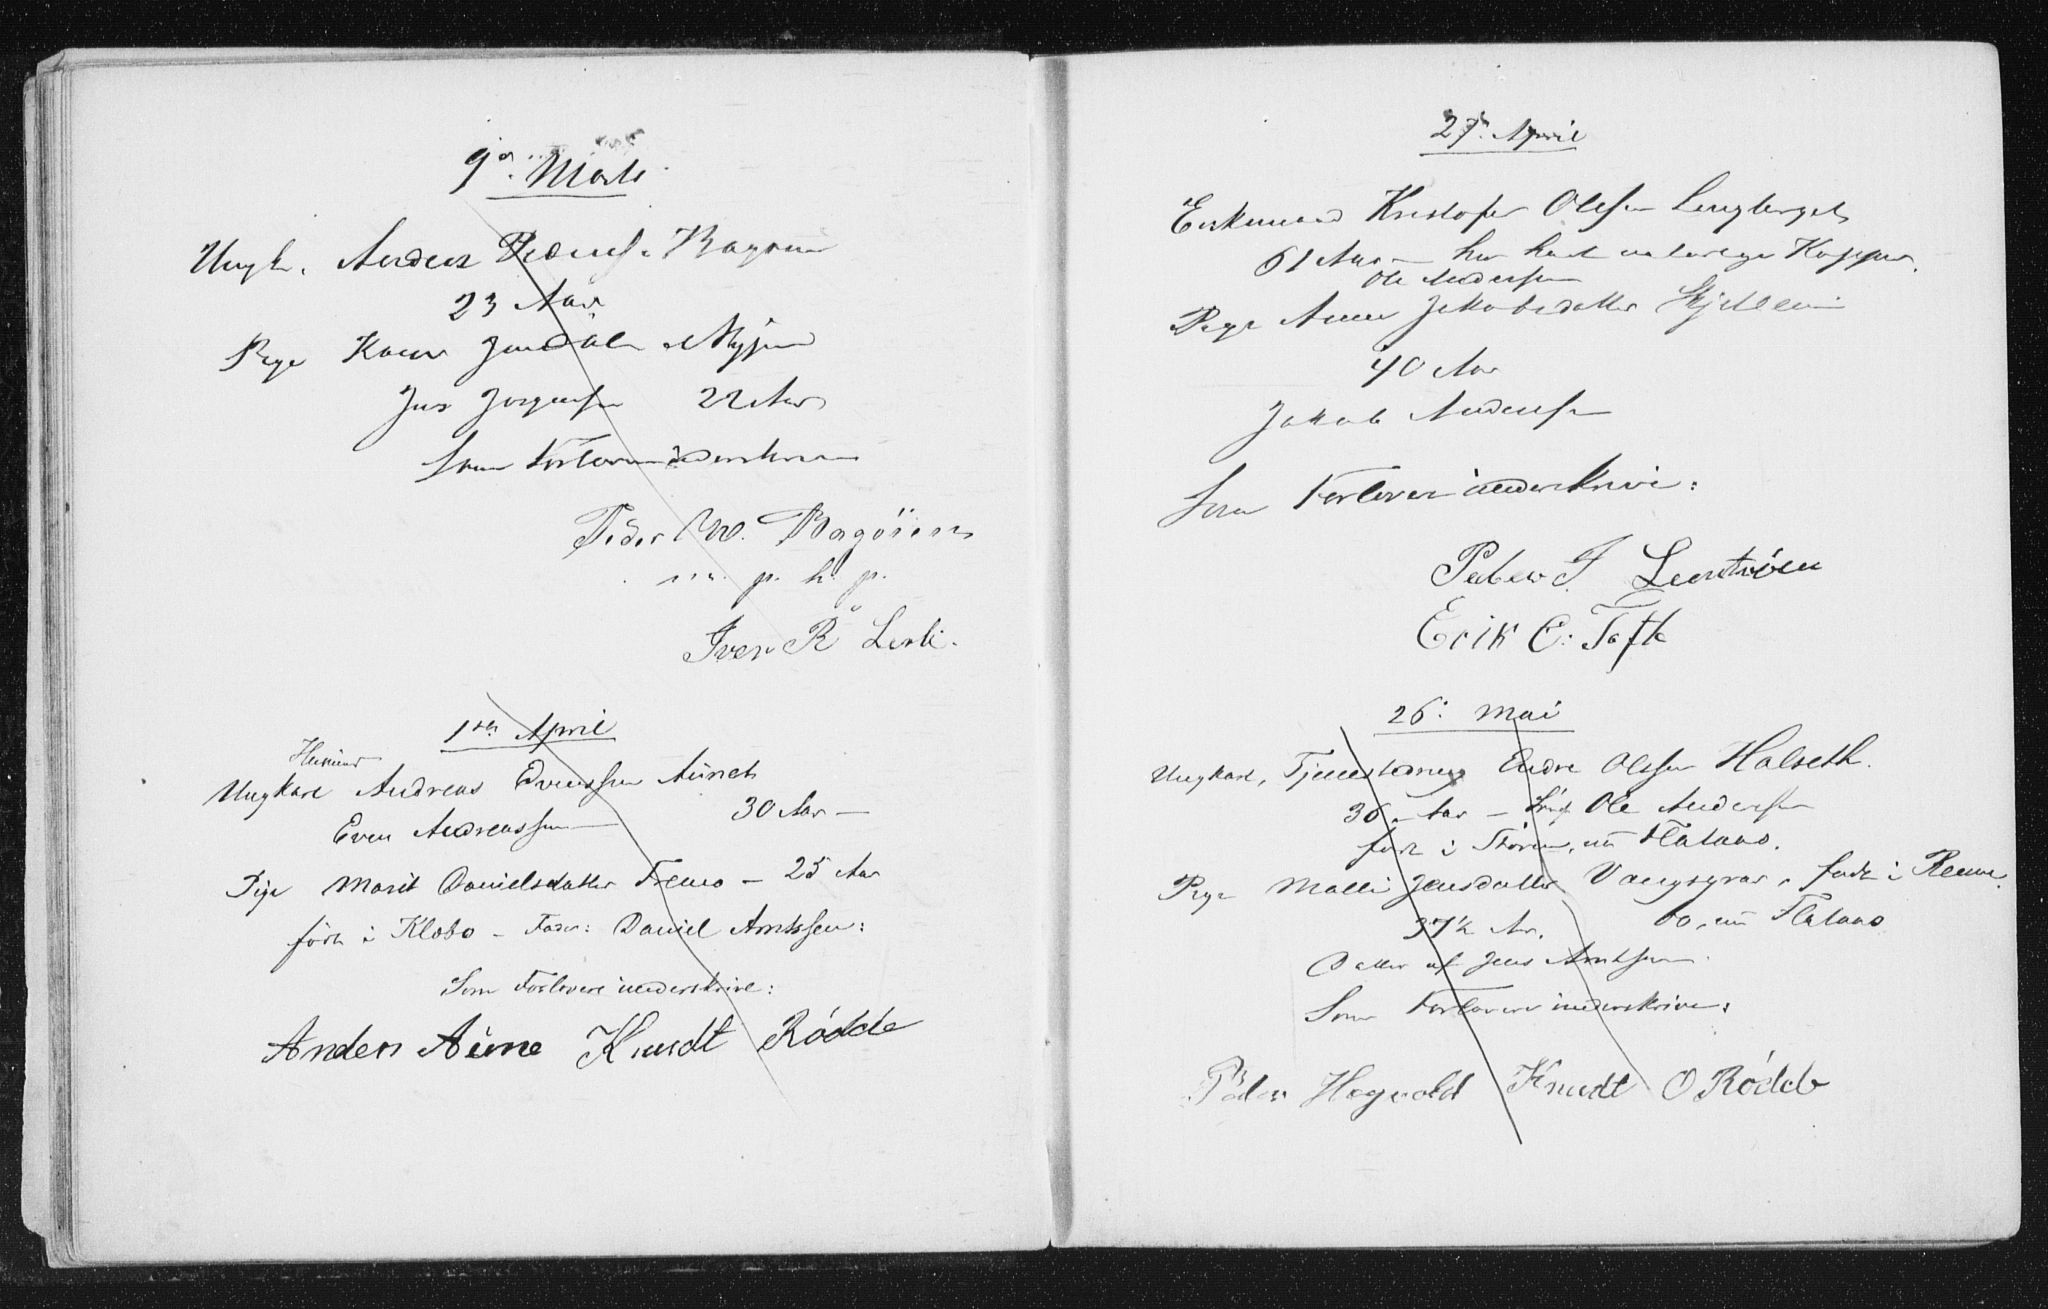 9de Marts
Ungk. Anders Pedersen Bagøien
23 Aar
Pige Karen Jensdatr
Jens Jørgensen 22 Aar
Som Forlovere underskrive
Peder Bagöien
m. p. h. p.
Iver R Lerli.
1ste April
Ungkarl Andreas Evenssen Aunet
Even Andreassen 30 Aar —
Pige Marit Danielsdatter Tremo — 25 Aar
født i Klæbo — Fader: Daniel Arntssen:
Som Forlovere underskrive:
Anders Aune Knudt Rødde
27de April
Enkemand Kristofer Olssen Lengberget
61 Aar — har havt naturlige Kopper.
Ole Andersen
Pige Anne Jakobsdatter
40 Aar
Jakob Andersen
Som Forlovere underskrive:
Peter J.
Erik E. Toft
26. Mai
Ungkarl, Tjenestedreng Endre Olssen Halseth.
36 Aar — Ole Anderssen
født i Støren, nu Flataas.
Pige Malli Jensdatter født i
37½ Aar. nu Flataas
Datter af Jens Arntssen.
Som Forlovere underskrive:
Peder Hegvold Knudt O Rødde